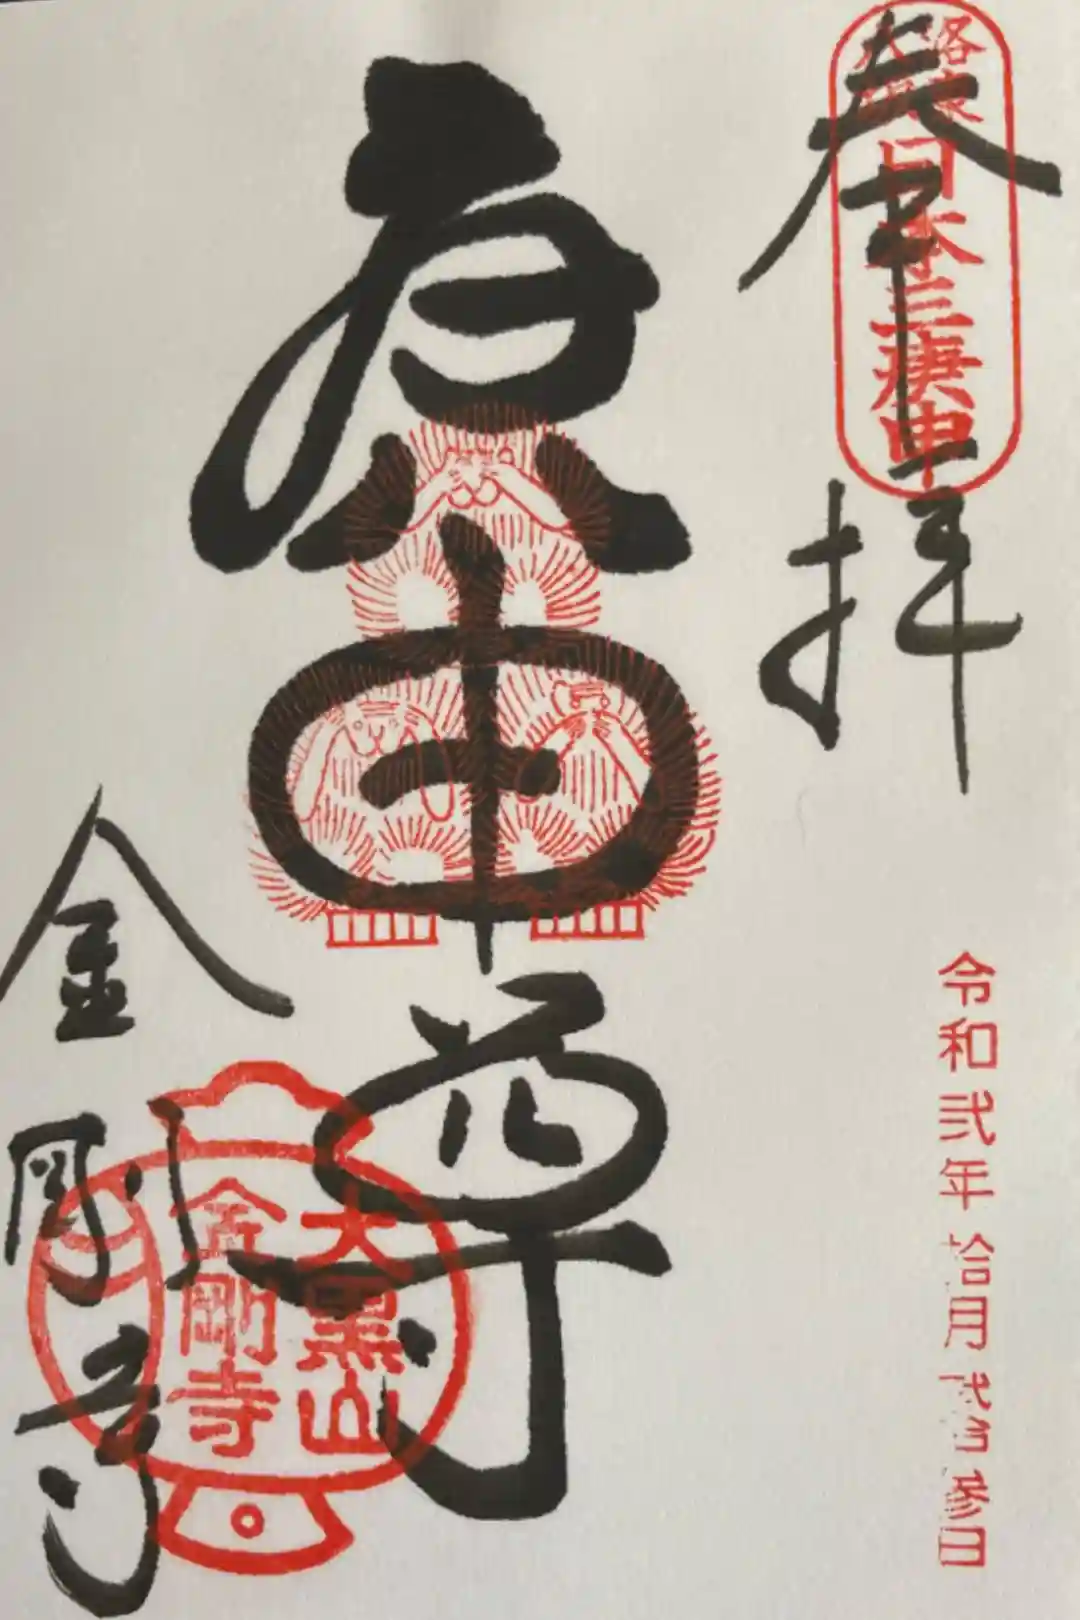 奉拝
日本三庚申
庚申尊
令和弐年拾月弐拾参日
大黒山
金剛寺
金剛寺